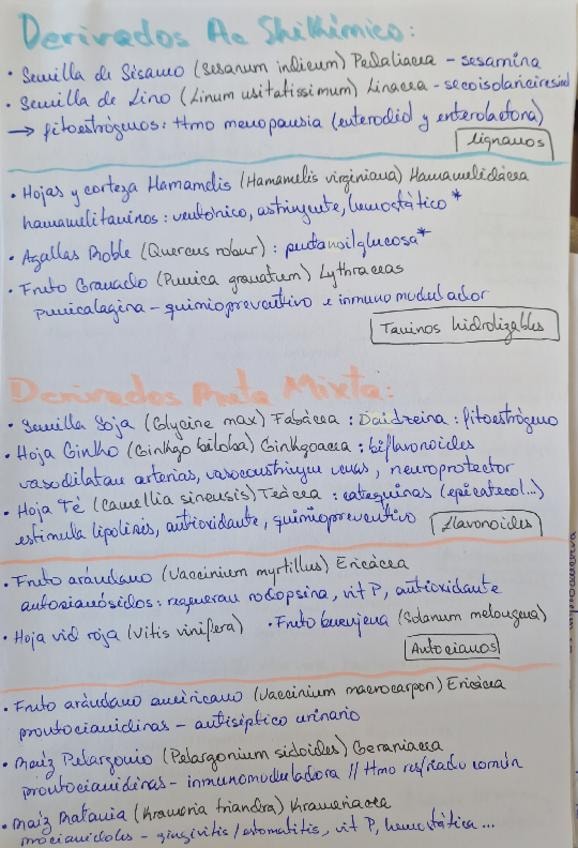 Derivados Ac Shikímico:
• Semilla de Sísamo (Sesanum indicum) Pedaliacea - sesamina
• Semilla de Lino (Linum usitatissimum) Linacea - secoisolariciresinol
→ fitoestrógenos: tto menopausia (enterodiol y enterolactona)
lignanos
• Hojas y corteza Hamamelis (Hamamelis virginiana) Hamamelidácea
hamamelitaninos: venotónico, astringente, hemostático *
• Agallas Roble (Quercus robur): pentanoilglucosa *
• Fruto Granado (Punica granatum) Lythraceas
punicalagina - quimiopreventivo e inmunomodulador
Taninos hidrolizables
Derivados Ruta Mixta:
• Semilla Soja (Glycine max) Fabácea: Daidzeina: fitoestrógeno
• Hoja Ginko (Ginkgo biloba) Ginkgoacea: biflavonoides
vasodilatan arterias, vasoconstriñen venas, neuroprotector
• Hoja Té (Camellia sinensis) Teácea: catequinas (epicatecol...)
estimula lipolisis, antioxidante, quimiopreventivo
flavonoides
• Fruto arándano (Vaccinium myrtillus) Ericácea
antocianósidos: regeneran rodopsina, vit P, antioxidante
• Hoja vid roja (Vitis vinifera) • Fruto berenjena (Solanum melongena)
Antocianos
• Fruto arándano americano (Vaccinium macrocarpon) Ericácea
prontocianidinas - antiséptico urinario
• Raíz Pelargonio (Pelargonium sidoides) Geraniacea
prontocianidinas - inmunomoduladora // tto resfriado común
• Raíz Ratania (Krameria triandra) Krameriacea
procianidoles - gingivitis/estomatitis, vit P, hemostática ...